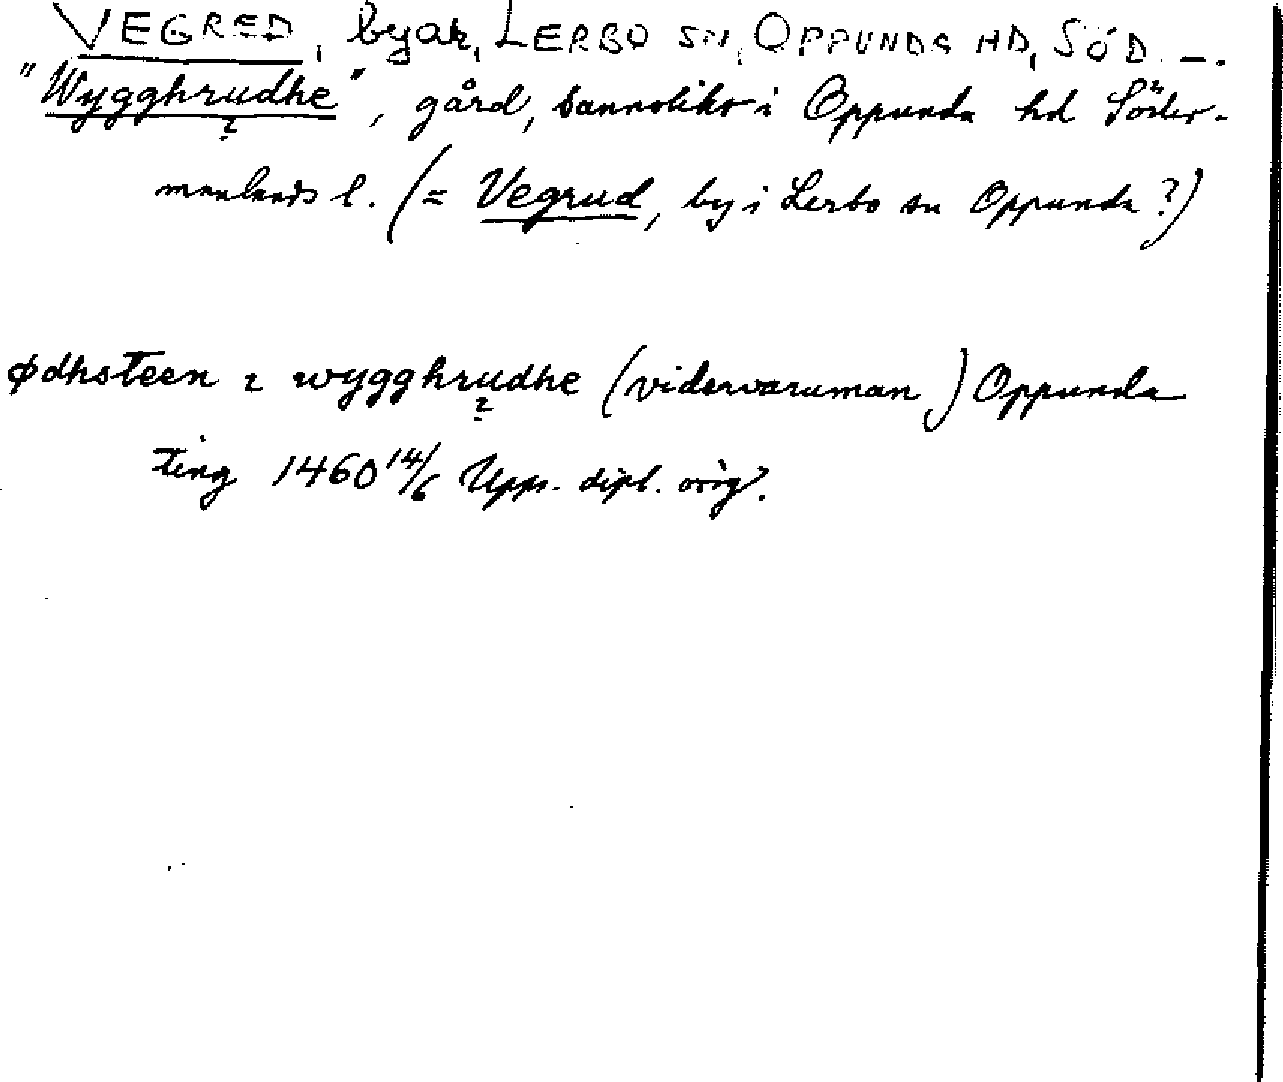 VEGRED, byar, LERBO SN, OPPUNDA HD, SÖD. –.
"Wygghrudhe", gård, sannolikt i Oppunda hd Söder-
manlands l. (= Vegrud, by i Lerbo sn Oppunda?)
ødhsteen i wygghrudhe (vidervaruman) Oppunda
ting 1460 14/6 Upps. dipl. orig.